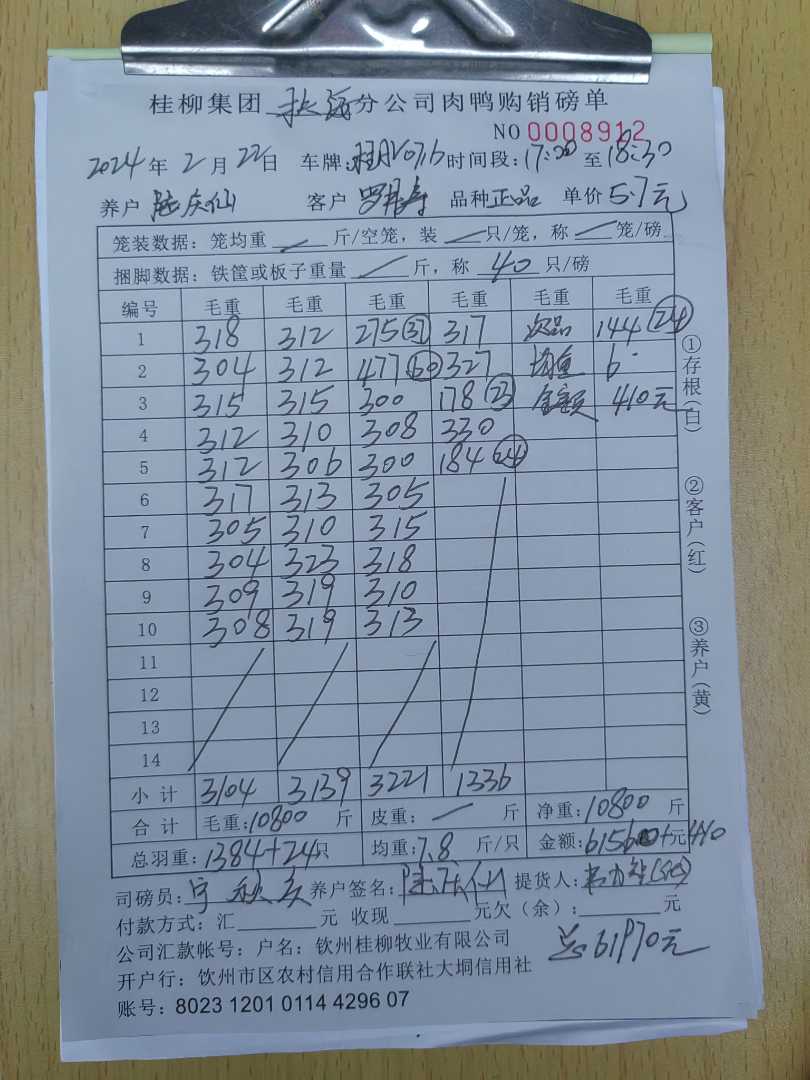 桂柳集团 分公司肉鸭购销磅单
NO 0008912
2024年2月22日 车牌: 时间段:17:00至18:30
养户 陆庆仙 客户 品种 正品 单价 5.7元
笼装数据:笼均重 — 斤/空笼,装 — 只/笼,称 — 笼/磅
捆脚数据:铁筐或板子重量 — 斤,称 40 只/磅
编号 毛重 毛重 毛重 毛重 毛重 毛重
1 318 312 275 37 317 次品 144 24
2 304 312 477 60 327 均重 6
3 315 315 300 178 23 金额 410元
4 312 310 308 330
5 312 306 300 184 24
6 317 313 305
7 305 310 315
8 304 323 318
9 309 319 310
10 308 319 313
11
12
13
14
小计 3104 3139 3221 1336
合计 毛重:10800斤 皮重: — 斤 净重:10800斤
总羽重:1384+24只 均重:7.8斤/只 金额:61560+元410
司磅员: 养户签名:陆庆仙 提货人:
付款方式:汇 元 收现 元欠(余): 元
公司汇款帐号:户名:钦州桂柳牧业有限公司
总61970元
开户行:钦州市区农村信用合作联社大垌信用社
账号:8023 1201 0114 4296 07
①存根(白)
②客户(红)
③养户(黄)